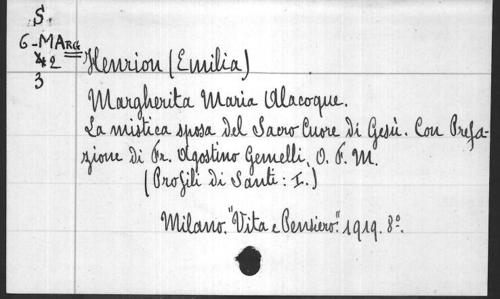 S.
6-MARG
42
3
Henrion (Emilia)
Margherita Maria Alacoque.
La mistica sposa del Sacro Cuore di Gesù. Con Prefa-
zione di Fr. Agostino Gemelli, O. F. M.
(Profili di Santi: I.)
Milano. "Vita e Pensiero". 1919. 8º.